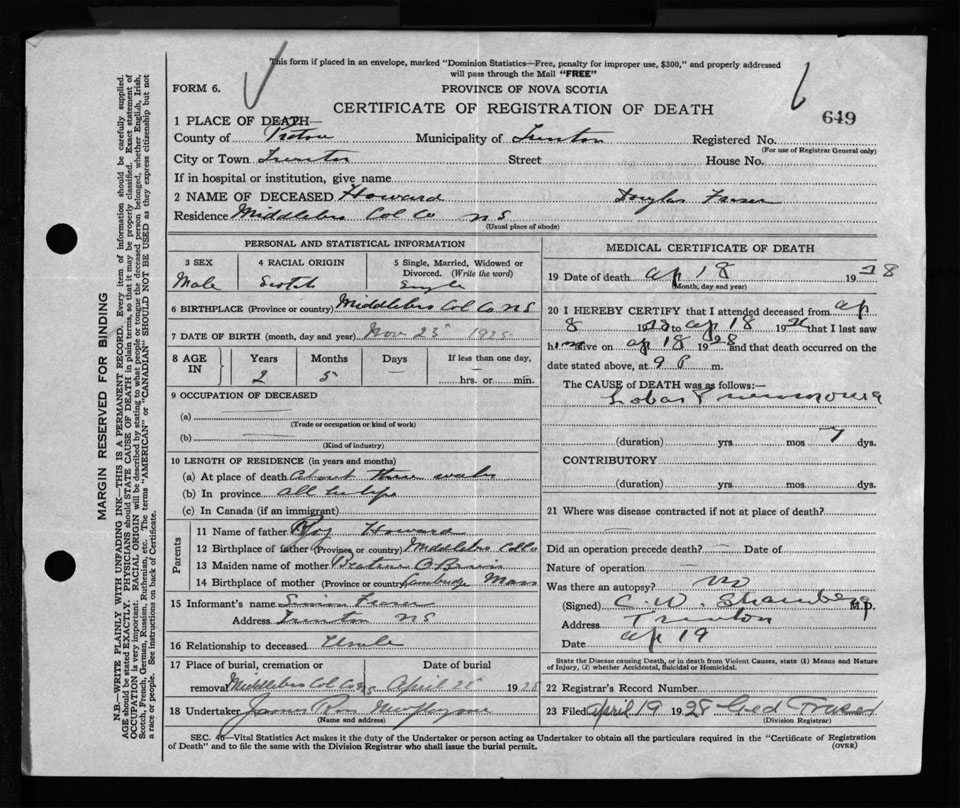 This form if placed in an envelope, marked "Dominion Statistics—Free, penalty for improper use, $300," and properly addressed
will pass through the Mail "FREE"
FORM 6.
PROVINCE OF NOVA SCOTIA
CERTIFICATE OF REGISTRATION OF DEATH
649
1 PLACE OF DEATH—
County of Pictou Municipality of Trenton Registered No.
(For use of Registrar General only)
City or Town Trenton Street House No.
If in hospital or institution, give name
2 NAME OF DECEASED Howard Douglas Fraser
Residence Middlebro Col Co N S
(Usual place of abode)
PERSONAL AND STATISTICAL INFORMATION
3 SEX 4 RACIAL ORIGIN 5 Single, Married, Widowed or Divorced. (Write the word)
Male Scotch Single
6 BIRTHPLACE (Province or country) Middlebro Col Co N S
7 DATE OF BIRTH (month, day and year) Nov 23 1925
8 AGE IN Years Months Days If less than one day,
2 5 — hrs. or min.
9 OCCUPATION OF DECEASED
(a)
(Trade or occupation or kind of work)
(b)
(Kind of industry)
10 LENGTH OF RESIDENCE (in years and months)
(a) At place of death About three weeks
(b) In province all his life
(c) In Canada (if an immigrant)
Parents
11 Name of father Roy Howard
12 Birthplace of father (Province or country) Middlebro Col Co
13 Maiden name of mother Beatrice O Brien
14 Birthplace of mother (Province or country) Cambridge Mass
15 Informant's name Simon Fraser
Address Trenton N S
16 Relationship to deceased Uncle
17 Place of burial, cremation or removal Date of burial
Middlebro Col Co NS April 1928
18 Undertaker James
(Name and address)
MEDICAL CERTIFICATE OF DEATH
19 Date of death Ap 18 1928
(Month, day and year)
20 I HEREBY CERTIFY that I attended deceased from ap
8 1928 to ap 18 19 that I last saw
him alive on ap 18 1928 and that death occurred on the
date stated above, at 9 P m.
The CAUSE of DEATH was as follows:—
Lobar Pneumonia
(duration) yrs. mos 7 dys.
CONTRIBUTORY
(duration) yrs. mos. dys.
21 Where was disease contracted if not at place of death?
Did an operation precede death? — Date of
Nature of operation —
Was there an autopsy? no
(Signed) C. W. M.D.
Address Trenton
Date ap 19
State the Disease causing Death, or in death from Violent Causes, state (1) Means and Nature
of Injury, (2) whether Accidental, Suicidal or Homicidal.
22 Registrar's Record Number
23 Filed April 19 1928 Geo d Fraser
(Division Registrar)
SEC. 46—Vital Statistics Act makes it the duty of the Undertaker or person acting as Undertaker to obtain all the particulars required in the "Certificate of Registration
of Death" and to file the same with the Division Registrar who shall issue the burial permit.
(OVER)
MARGIN RESERVED FOR BINDING
N.B.—WRITE PLAINLY WITH UNFADING INK—THIS IS A PERMANENT RECORD. Every item of information should be carefully supplied.
AGE should be stated EXACTLY. PHYSICIANS should STATE CAUSE OF DEATH in plain terms, so that it may be properly classified. Exact statement of
OCCUPATION is very important. RACIAL ORIGIN will be described by stating to what people or tongue the deceased person belonged, whether English, Irish,
Scotch, French, German, Russian, Ruthenian, etc. The terms "AMERICAN" or "CANADIAN" SHOULD NOT BE USED as they express citizenship but not
a race or people. See instructions on back of Certificate.